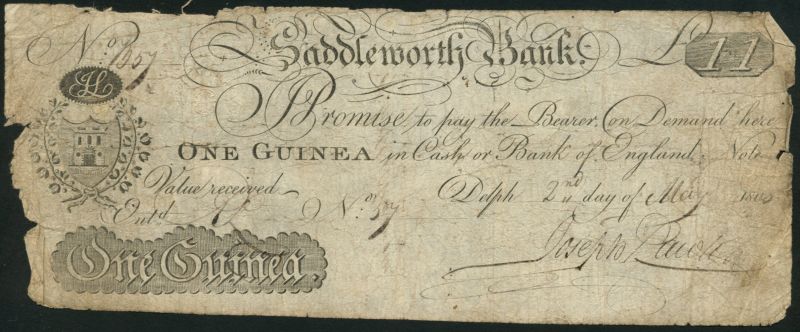 No. Saddleworth Bank. £ 1 1
JH
I Promise to pay the Bearer on Demand here
ONE GUINEA in Cash or Bank of England Note
Value received Delph 2nd day of May
Entd No.
One Guinea. Joseph